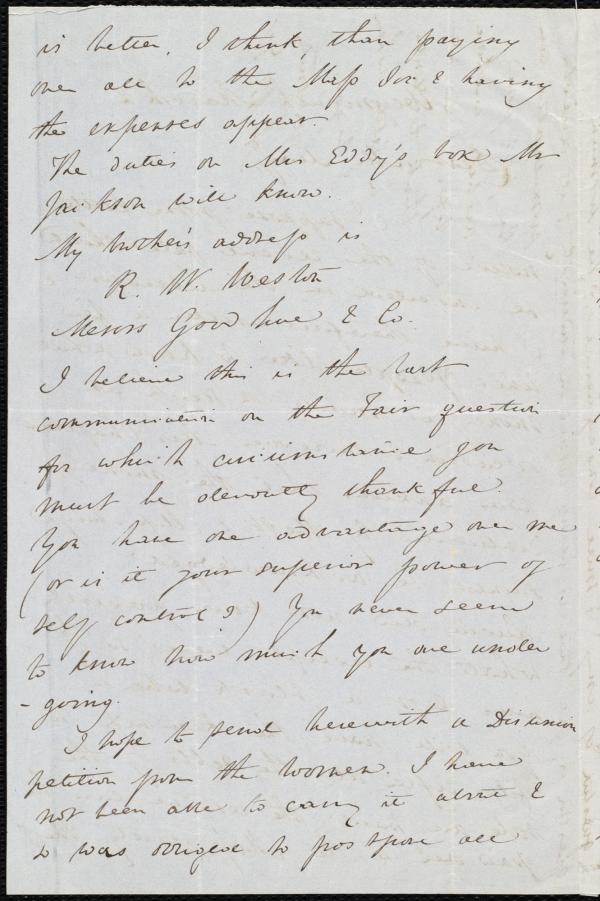 is better, I think, than paying
over all to the Mass Soc & having
the expenses appear.
The duties on Mrs Eddy's box Mr
Jackson will know.
My brother's address is
R. W. Weston
Messrs Goodhue & Co.
I believe this is the last
communication on the Fair question
for which circumstance you
must be devoutly thankful.
You have one advantage over me
(or is it your superior power of
self control?) You never seem
to know how much you are under
-going.
I hope to send herewith a Disunion
petition from the women. I have
not been able to carry it about &
so was obliged to postpone all